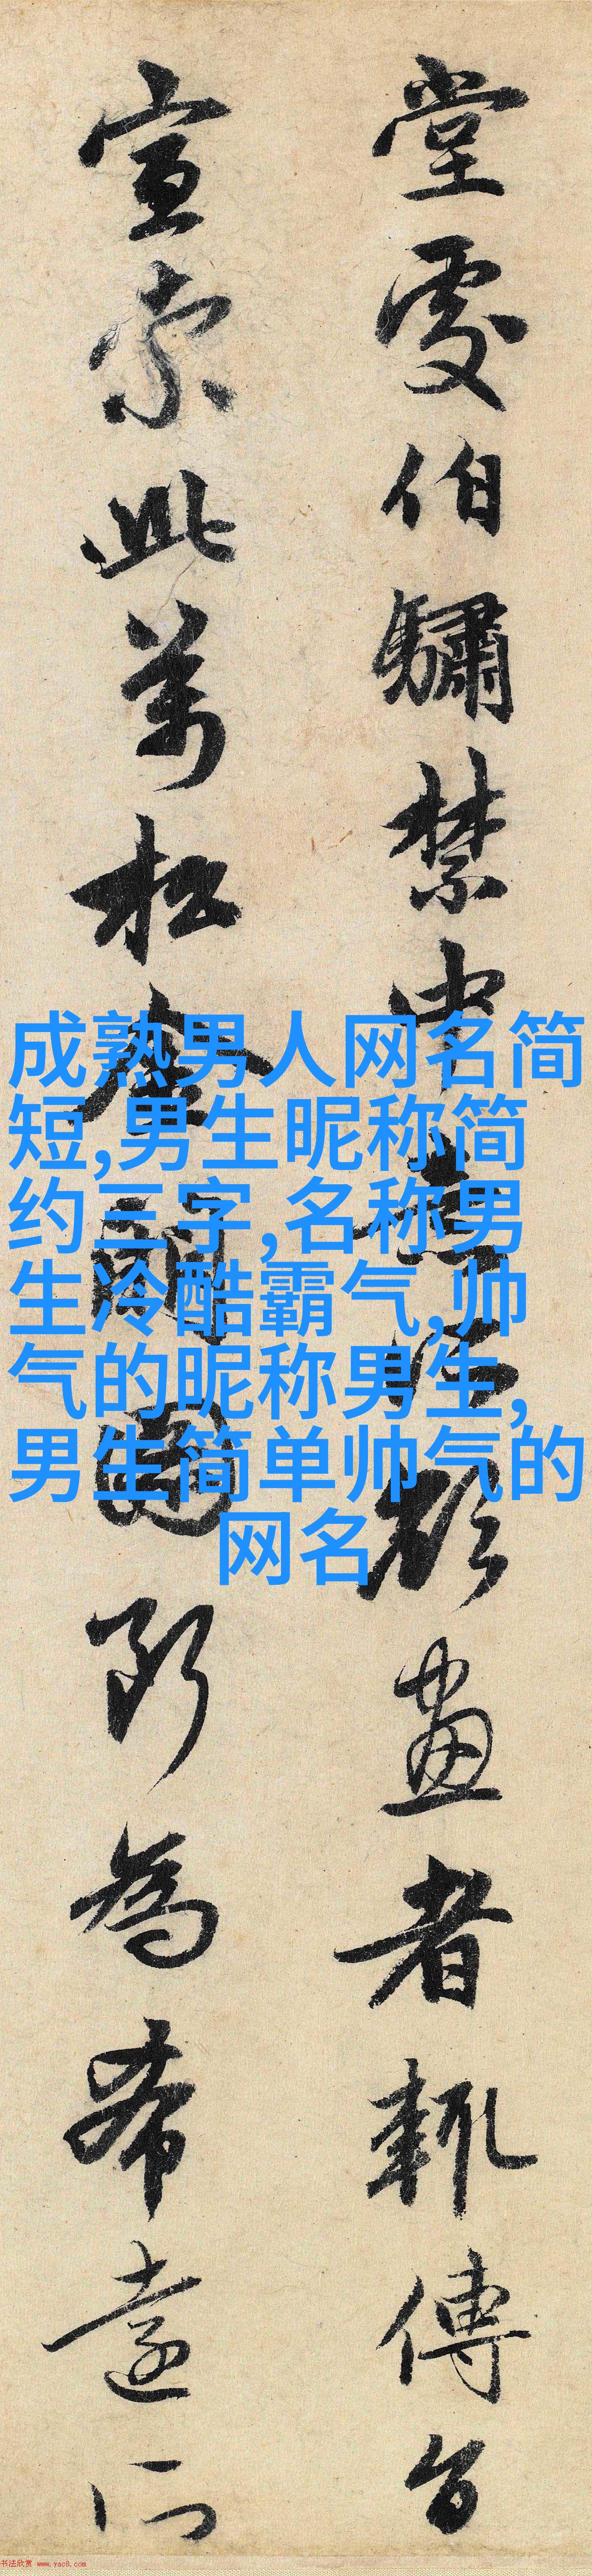 堂處伯驌禁中
畫者輒傳
宣索此萬松金闕圖
為希遠
成熟男人网名简
短,男生昵称简
约三字,名称男
生冷酷霸气,帅
气的昵称男生,
男生简单帅气的
网名
书法欣赏 www.yac8.com